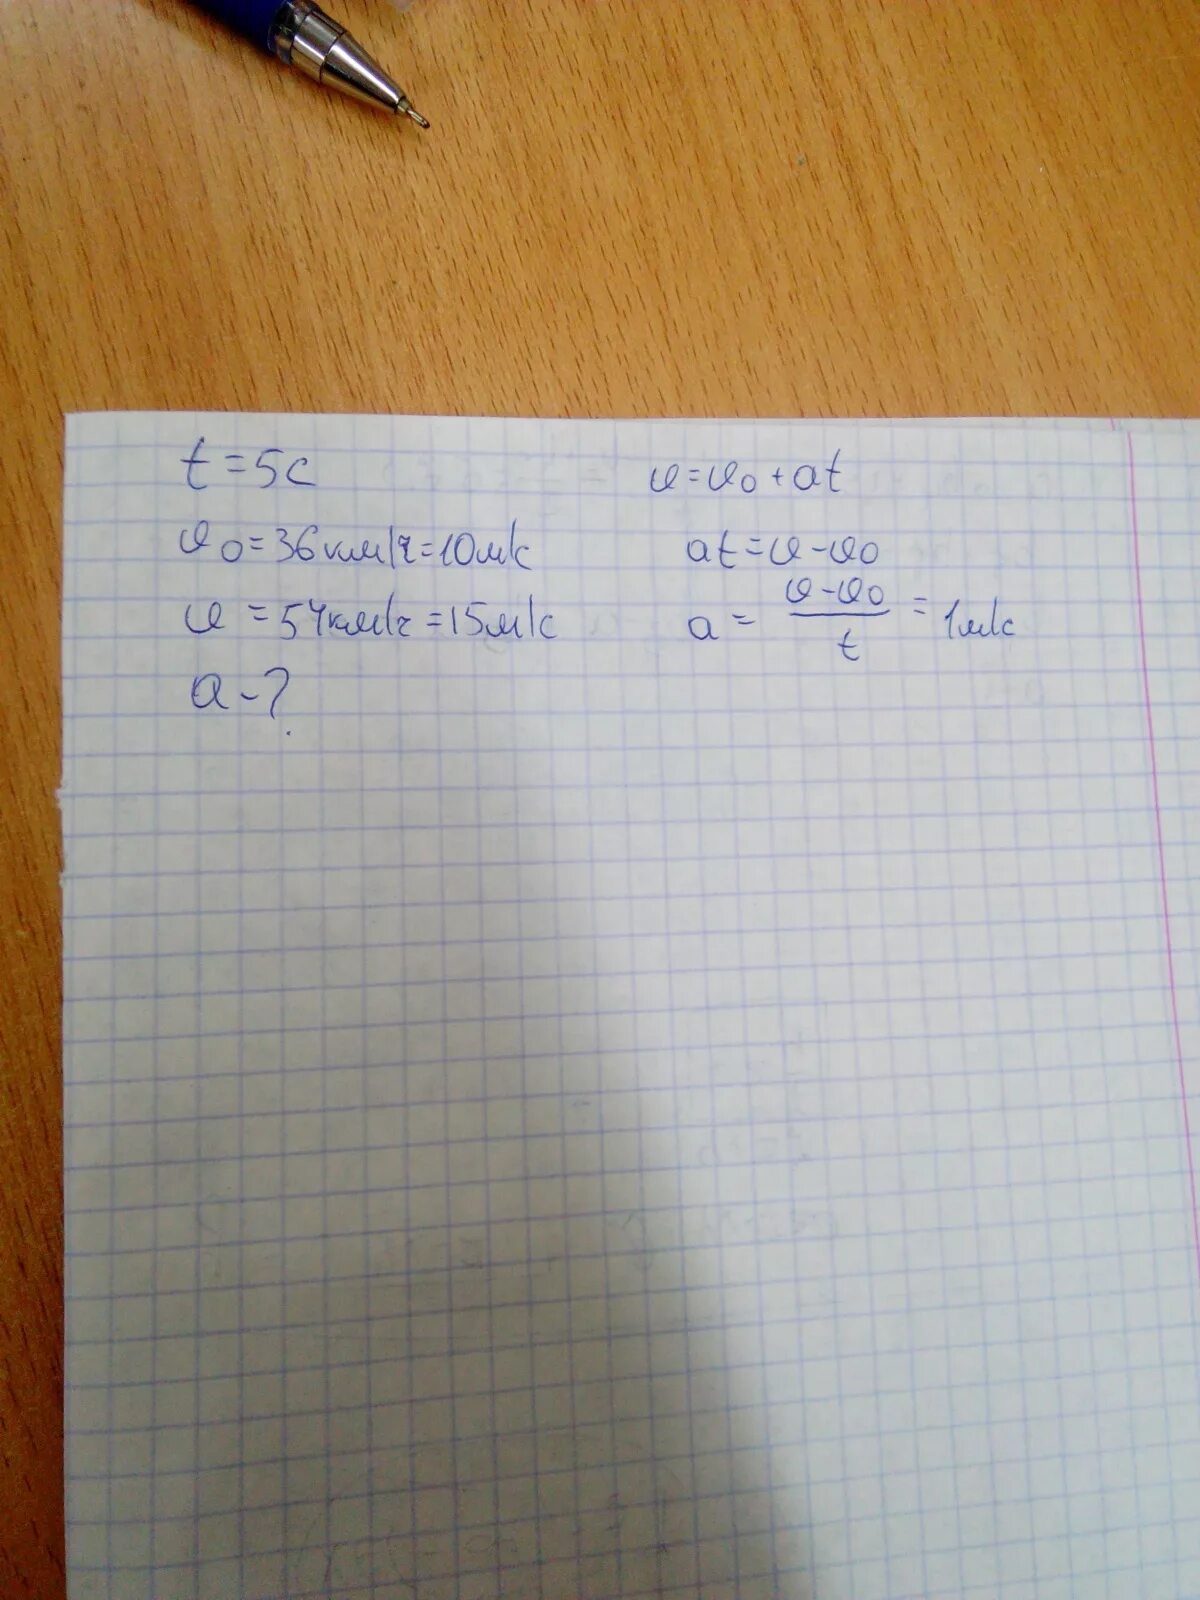 t = 5с
υ0 = 36км/ч = 10м/с
υ = 54км/ч = 15м/с
a - ?
υ = υ0 + at
at = υ - υ0
a = (υ - υ0)/t = 1м/с